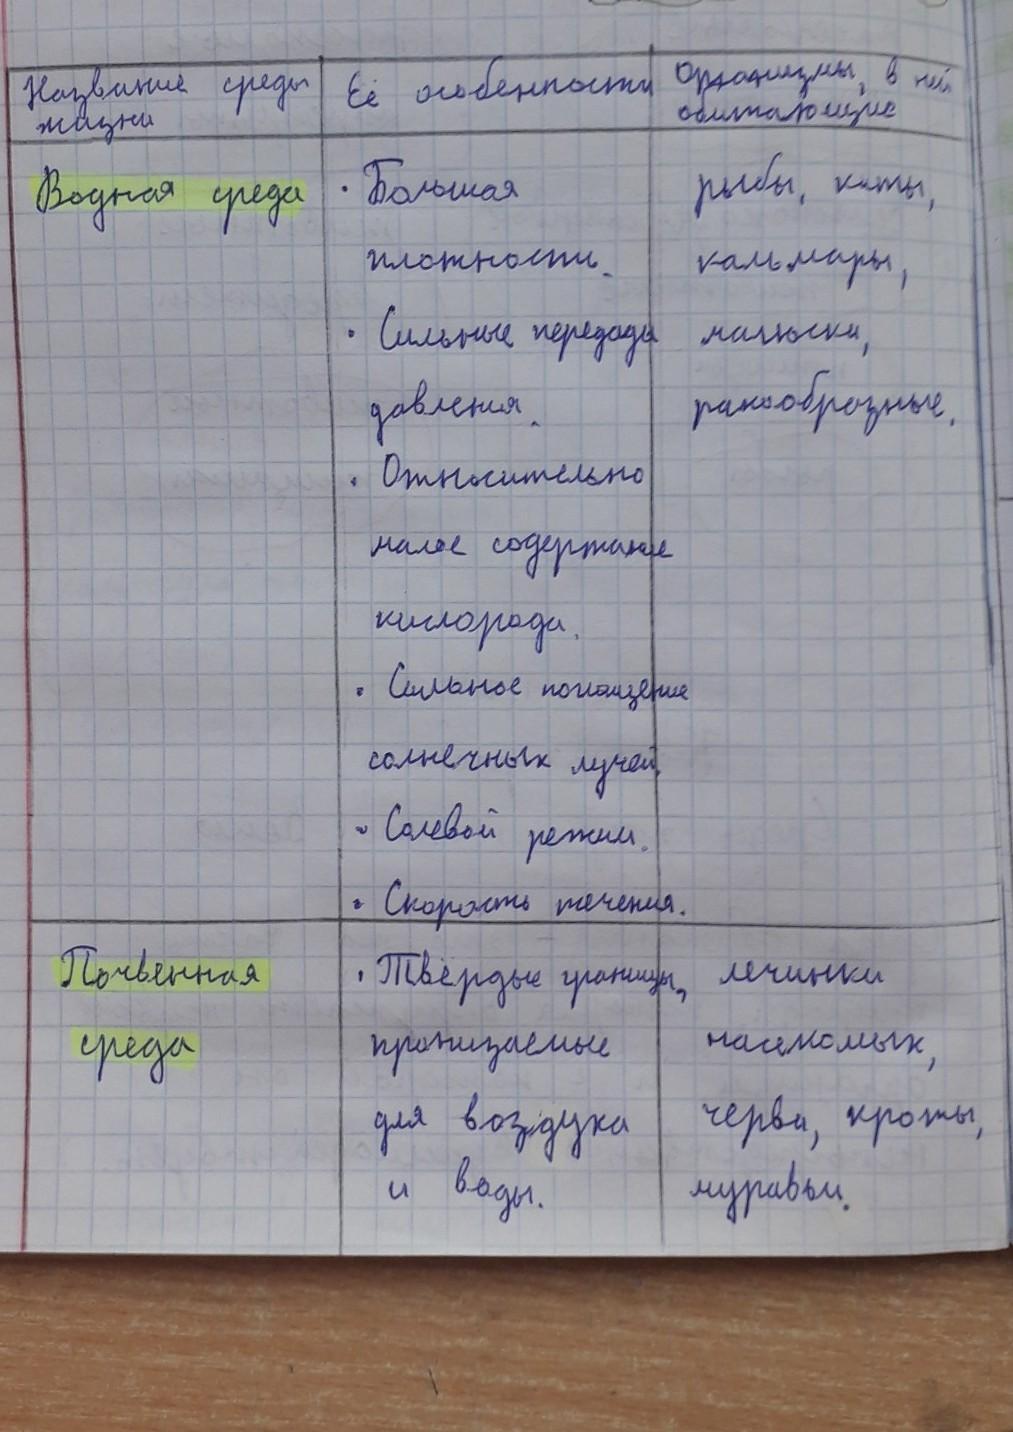 Название среды жизни
Её особенности
Организмы, в ней обитающие
Водная среда
• Большая
плотность.
• Сильные перепады
давления.
• Относительно
малое содержание
кислорода.
• Сильное поглощение
солнечных лучей.
• Солевой режим.
• Скорость течения.
рыбы, киты,
кальмары,
малюски,
ракообразные.
Почвенная
среда
• Твёрдые границы,
проницаемые
для воздуха
и воды.
лечинки
насекомых,
черви, кроты,
муравьи.